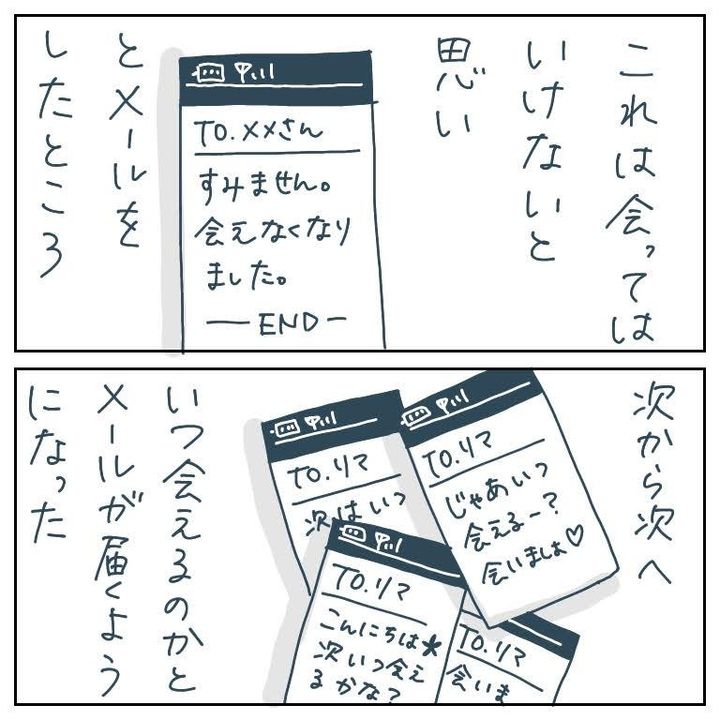 これは会っては
いけないと
思い
TO.××さん
すみません。
会えなくなり
ました。
ーENDー
とメールを
したところ
次から次へ
TO.リマ
じゃあいつ
会えるー?
会いましょ♡
TO.リマ
次はいつ
TO.リマ
こんにちは★
次いつ会え
るかな?
TO.リマ
会いま
いつ会えるのかと
メールが届くよう
になった